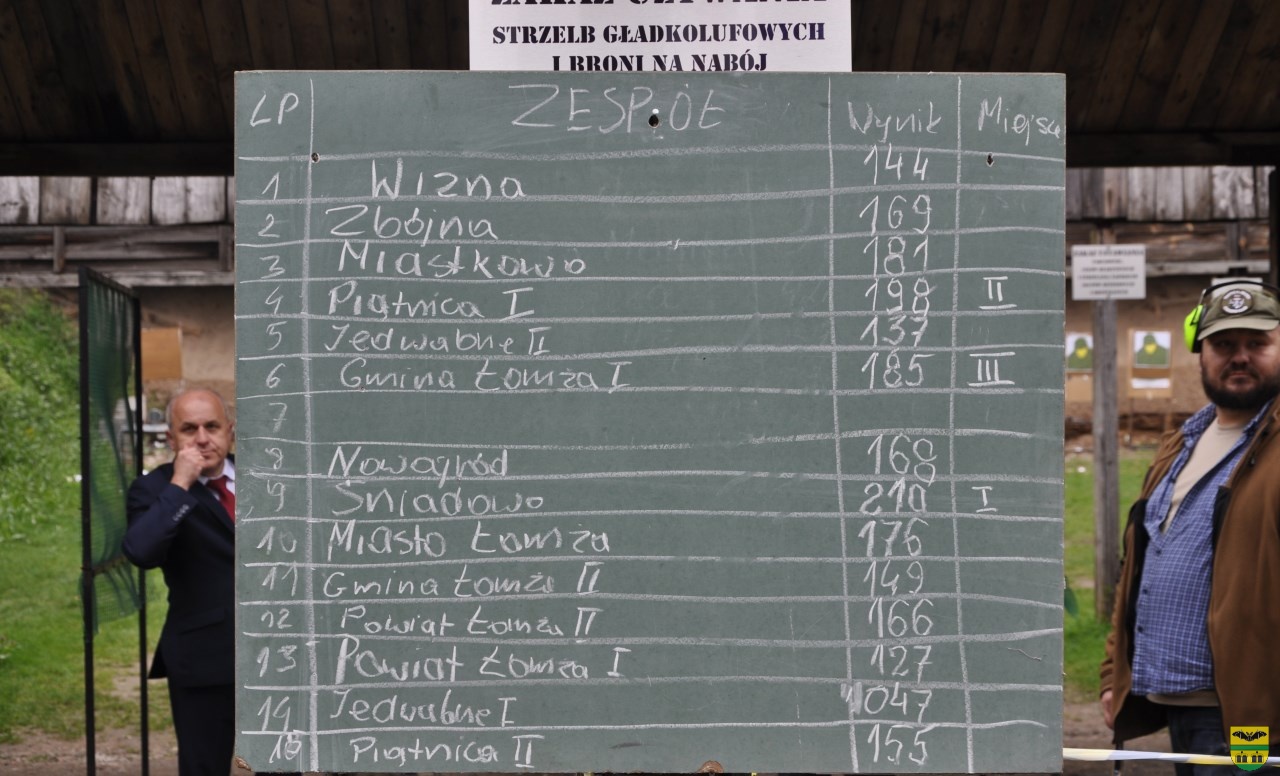 ZAKAZ UŻYWANIA
STRZELB GŁADKOLUFOWYCH
I BRONI NA NABÓJ
LP ZESPÓŁ Wynik Miejsce
1 Wizna 144
2 Zbójna 169
3 Miastkowo 181
4 Piątnica I 198 II
5 Jedwabne II 137
6 Gmina Łomża I 185 III
7
8 Nowogród 168
9 Śniadowo 210 I
10 Miasto Łomża 176
11 Gmina Łomża II 149
12 Powiat Łomża II 166
13 Powiat Łomża I 127
14 Jedwabne I 047
Piątnica II 155